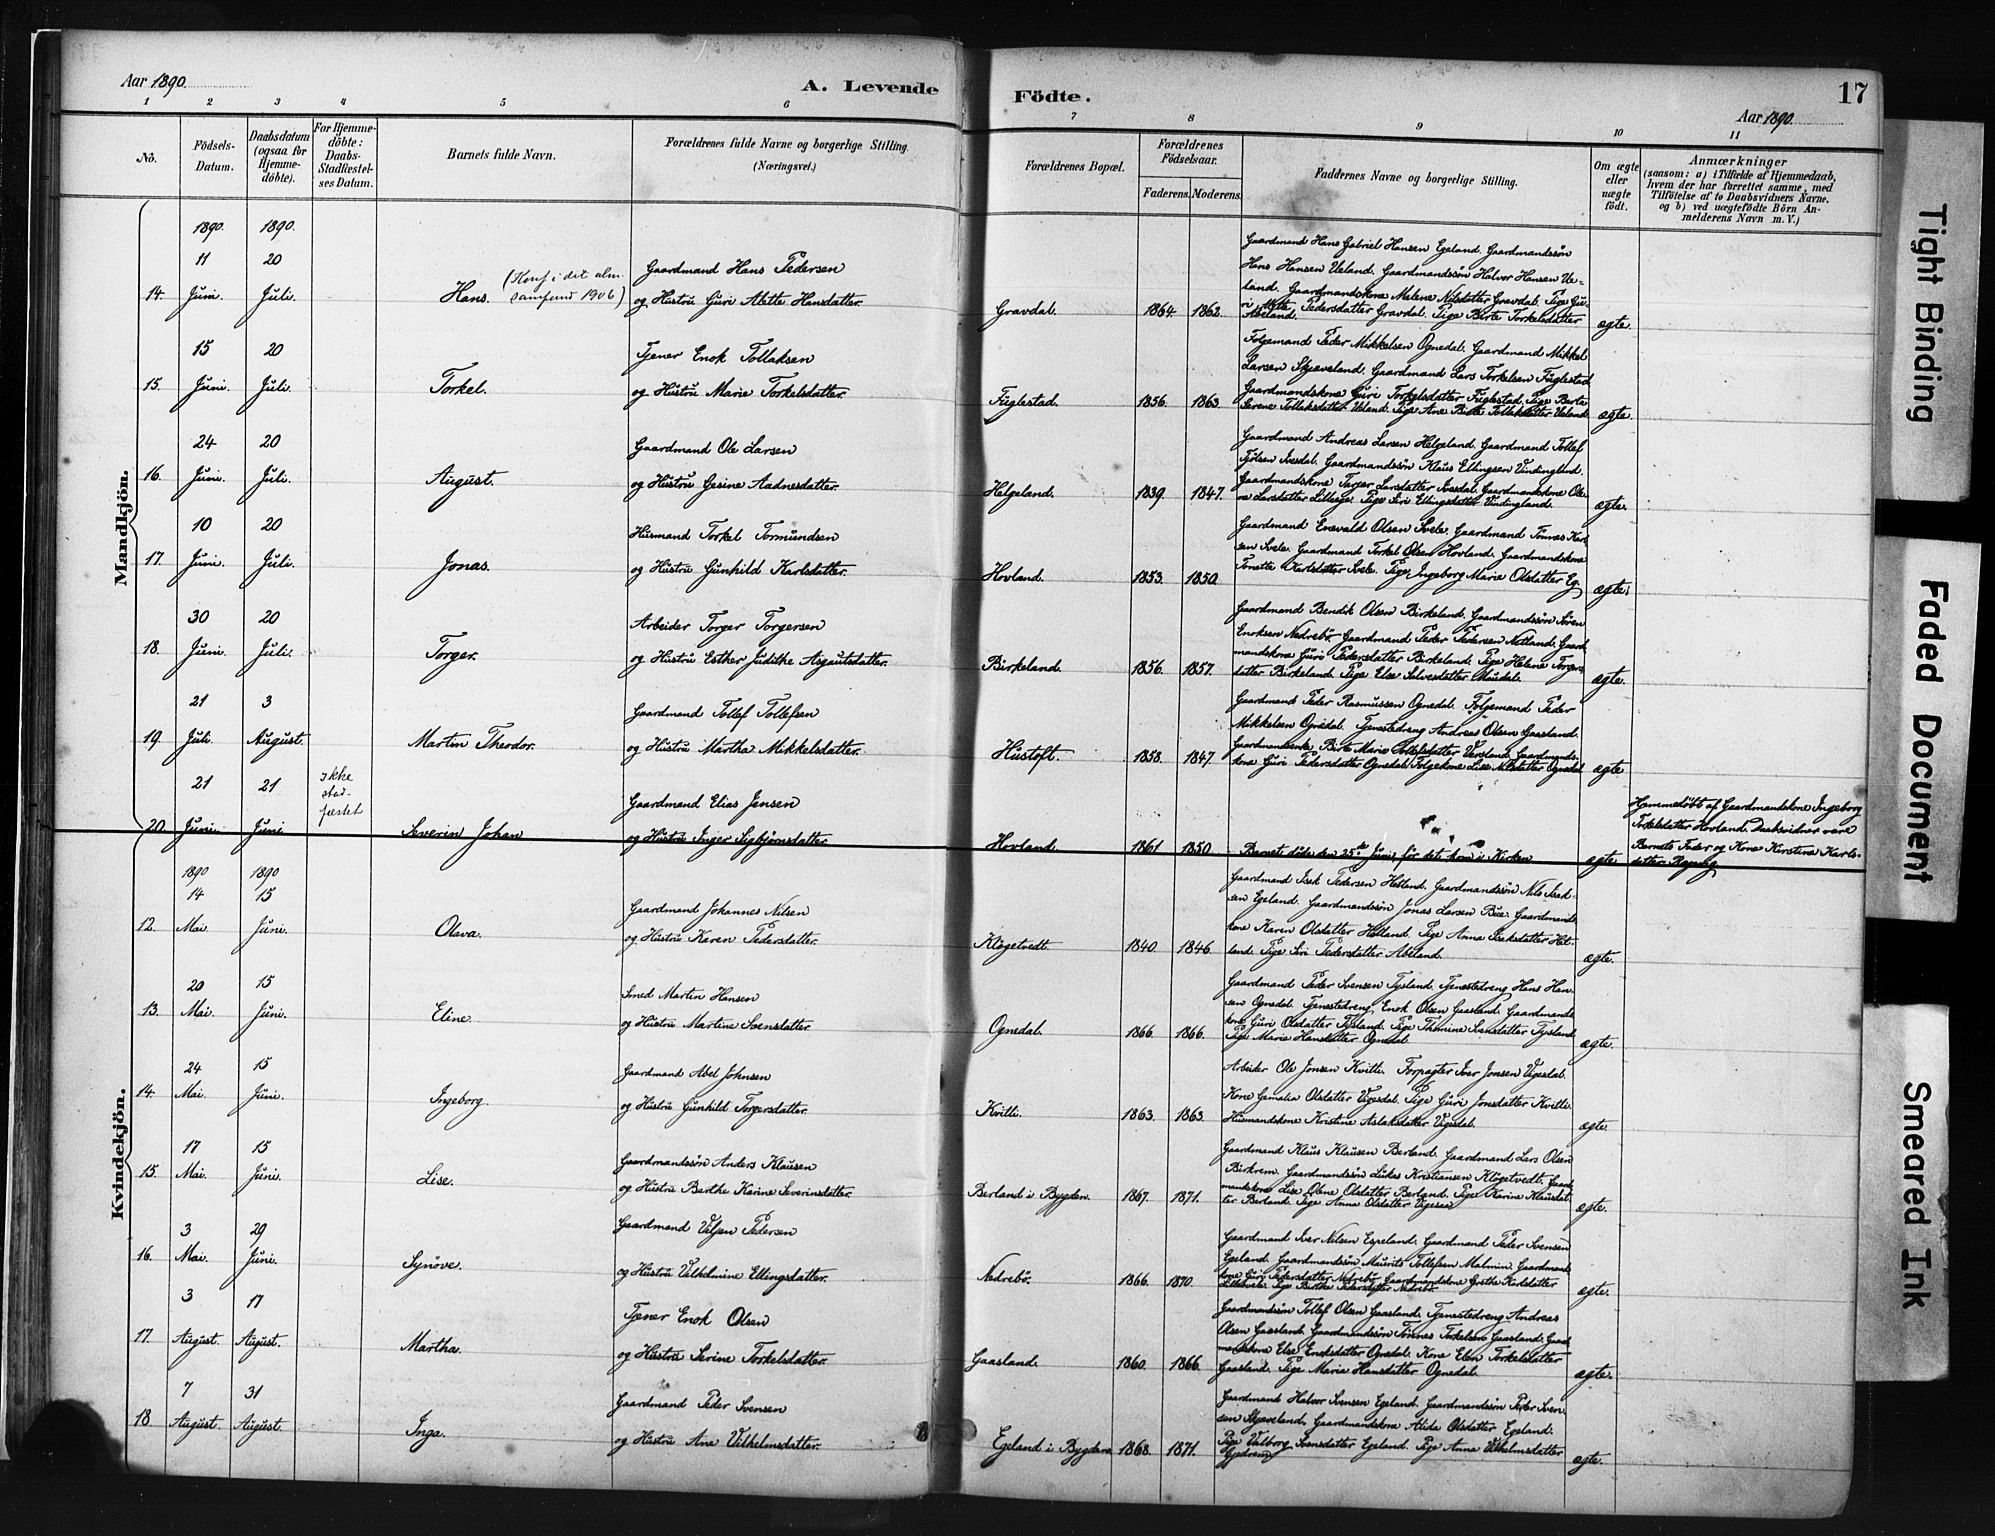 Aar 1890.
A. Levende
Födte.
17
Aar 1890.
1 2 3 4 5 6 7 8 9 10 11
No.
Födsels-Datum.
Daabsdatum (ogsaa for Hjemme-döbte).
For Hjemme-döbte: Daabs-Stadfæstel-ses Datum.
Barnets fulde Navn.
Forældrenes fulde Navne og borgerlige Stilling (Næringsvei.)
Forældrenes Bopæl.
Forældrenes Födselsaar.
Faderens. Moderens.
Faddernes Navne og borgerlige Stilling.
Om ægte eller uægte födt.
Anmærkninger
(saasom: a) i Tilfælde af Hjemmedaab,
hvem der har forrettet samme, med
Tilföielse af to Daabsvidners Navne.
og b) ved uægtefödte Börn An-
melderens Navn m. V.)
Mandkjön.
1890. 1890.
11 20 Gaardmand Hans Pedersen
14. Juni. Juli. Hans. (Konf. i det alm. samfund 1906) og Hustru Guri Alette Hansdatter. Gravdal. 1864. 1862. ægte.
Gaardmand Hans Gabriel Hansen Egeland. Gaardmandssön
Hans Hansen Ueland. Gaardmandssön Halvor Hansen Ue-
land. Gaardmandskone Malene Nilsdatter Gravdal. Pige Gu-
ri Mette Pedersdatter Gravdal. Pige Berte Torkelsdatter
Abeland.
15 20 Tjener Enok Tollaksen
15. Juni. Juli. Torkel. og Hustru Marie Torkelsdatter. Fuglestad. 1856. 1863. ægte.
Folgemand Peder Mikkelsen Ognedal. Gaardmand Mikkel
Larsen Skjæveland. Gaardmand Lars Torkelsen Fuglestad
Gaardmandskone Guri Torkelsdatter Fuglestad. Pige Berta
Serene Tollaksdatter Ueland. Pige Ane Berte Tollaksdatter Ueland.
24 20 Gaardmand Ole Larsen
16. Juni. Juli. August. og Hustru Gesine Aadnesdatter. Helgeland. 1839. 1847. ægte.
Gaardmand Andreas Larsen Helgeland. Gaardmand Tollef
Tjölsen Ivesdal. Gaardmandssön Klaus Ellingsen Vindingland.
Gaardmandskone Tarjer Larsdatter Ivesdal. Gaardmandskone Ole-
ne Larsdatter. Pige Siri Ellingsdatter Vindingland.
10 20 Husmand Torkel Tormundsen
17. Juni. Juli. Jonas. og Hustru Gunhild Karlsdatter. Hovland. 1853. 1850. ægte.
Gaardmand Enevald Olsen Svele. Gaardmand Tönnes Karl-
sen Svele. Gaardmand Torkel Olsen Hovland. Gaardmandskone
Tonette Karlsdatter Svele. Pige Ingeborg Marie Olsdatter Eg.
30 20 Arbeider Torger Torgersen
18. Juni. Juli. Torger. og Hustru Esther Judithe Asgautsdatter. Birkeland. 1856. 1857. ægte.
Gaardmand Bendik Olsen Birkeland. Gaardmandssön Sören
Enoksen Nedrebö. Gaardmand Peder Pedersen Netland. Gaard-
mandskone Guri Pedersdatter Birkeland. Pige Helene Torgers-
datter Birkeland. Pige Else Salvesdatter Maudal.
21 3 Gaardmand Tollef Tollefsen
19. Juli. August. Martin Theodor. og Hustru Martha Mikkelsdatter. Hustoft. 1858. 1847. ægte
Gaardmand Peder Rasmussen Ognedal. Folgemand Peder
Mikkelsen Ognedal. Tjenestedreng Andreas Olsen Gaasland.
Gaardmandsenke Berte Marie Tollefsdatter Versland. Gaardmands-
kone Guri Pedersdatter Ognedal. Folgekone Lise Nilsdatter Ognedal
21 21 ikke stad-fæstet Gaardmand Elias Jensen
20. Juni. Juni Severin Johan og Hustru Inger Sigbjörnsdatter. Hovland. 1861. 1850. ægte
Barnet döde den 25de Juni, för det kom i Kirken
Hjemmedöbt af Gaardmandskone Ingeborg
Torkelsdatter Hovland. Daabsvidner vare
Barnets Fader og Kone Kirstine Karls-
datter
Kvindekjön.
1890 1890
14 15 Gaardmand Johannes Nilsen
12. Mai. Juni. Olava. og Hustru Karen Pedersdatter. Klögetvedt. 1840. 1846. ægte.
Gaardmand Isak Pedersen Hetland. Gaardmandssön Nils Isak-
sen Egeland. Gaardmandssön Jonas Larsen Bue. Gaardmands-
kone Karen Olsdatter Hetland. Pige Anna Isaksdatter Het-
land. Pige Siri Pedersdatter Abeland.
20 15 Smed Martin Hansen
13. Mai. Juni. Eline. og Hustru Martine Svensdatter. Ognedal. 1866. 1866. ægte.
Gaardmand Peder Svensen Tysland. Tjenestedreng Hans Han-
sen Ognedal. Tjenestedreng Enok Olsen Gaasland. Gaardmands-
kone Guri Olsdatter Tysland. Pige Thomine Svensdatter Tysland
Pige Marie Hansdatter Ognedal.
24 15 Gaardmand Abel Johnsen
14. Mai. Juni. Ingeborg. og Hustru Gunhild Torgersdatter. Kvitli. 1863. 1863. ægte.
Arbeider Ole Jonsen Kvitli. Forpagter Iver Jonsen Vigesdal.
Kone Gemalia Olsdatter Vigesdal. Pige Guri Jonsdatter Kvitli.
Husmandskone Kristine Aslaksdatter Vigesdal.
17 15 Gaardmandssön Anders Klausen
15. Mai. Juni. Lise. og Hustru Berthe Karine Severinsdatter. Berland i Bygden. 1867. 1871. ægte.
Gaardmand Klaus Klausen Berland. Gaardmand Lars Olsen
Birkrem. Gaardmandssön Lukas Kristiansen Klögetvedt. Gaard-
mandskone Lise Olene Olsdatter Berland. Pige Karine Klausdat-
ter Berland. Pige Anna Olsdatter Vigesaa
3 29 Gaardmand Viljen Pedersen
16. Mai. Juni. Synöve. og Hustru Vilhelmine Ellingsdatter. Nedrebö. 1866. 1870. ægte.
Gaardmand Iver Nilsen Espeland. Gaardmand Peder Svensen
Egeland. Gaardmandssön Maurits Tollefsen Malmin. Gaardmands-
kone Guri Pedersdatter Nedrebö. Gaardmandskone Grethe Karlsdatter
Pige Birthe Pedersdatter Nedrebö.
3 17 Tjener Enok Olsen
17. August. August. Martha. og Hustru Serine Torkelsdatter. Gaasland. 1860. 1866. ægte.
Gaardmandssön Tollef Olsen Gaasland. Tjenestedreng Andreas
Olsen Gaasland. Gaardmandssön Tönnes Torkelsen Gaasland. Gaard-
mandskone Else Enoksdatter Ognedal. Kone Elen Torkelsdatter
Gaasland. Pige Marie Hansdatter Ognedal.
7 31 Gaardmand Peder Svensen
18 August. August. Inga. og Hustru Ane Vilhelmsdatter. Egeland i Bygden. 1868. 1871. ægte.
Gaardmand Halvor Svensen Egeland. Gaardmandssön Peder Sven-
sen Skjæveland. Gaardmandskone Alida Olsdatter Egeland.
Pige Valborg Svensdatter Egeland. Pige Anna Vilhelmsdatter
Gjedrem
Tight Binding
Faded Document
Smeared Ink